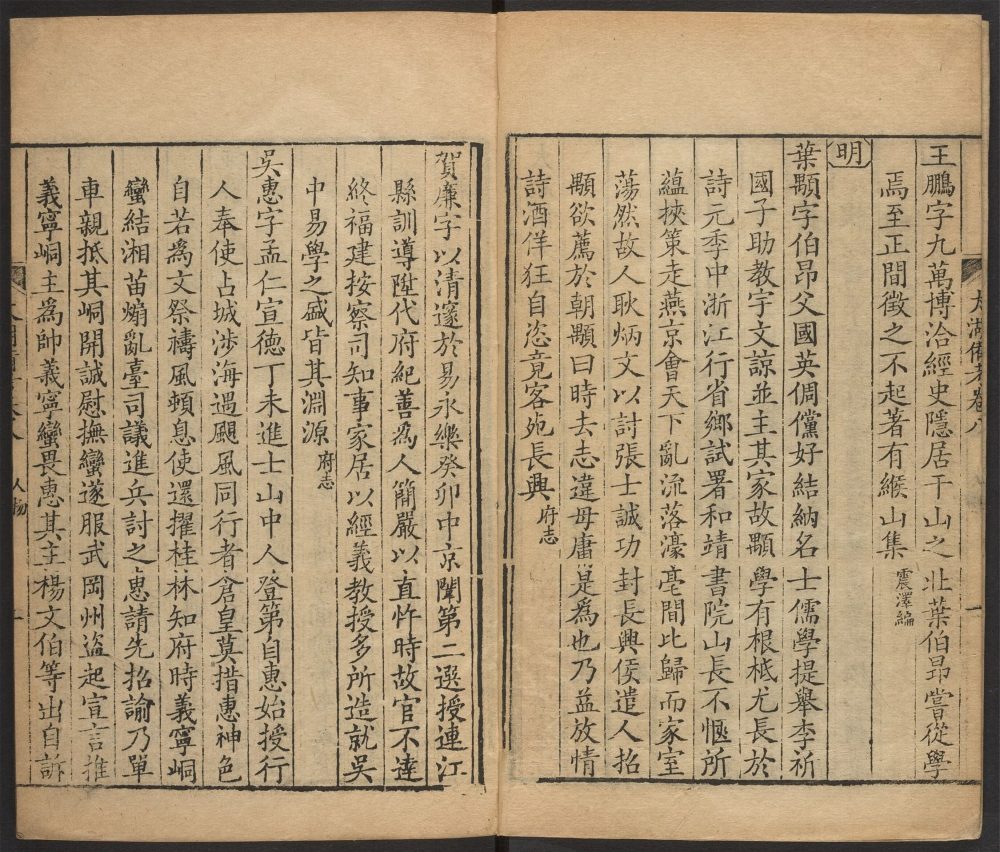 王鵬字九萬博洽經史隱居干山之北葉伯昂嘗從學
焉至正間徵之不起著有緱山集震澤編
明
葉顒字伯昂父國英倜儻好結納名士儒學提舉李祈
國子助教宇文諒並主其家故顒學有根柢尤長於
詩元季中浙江行省鄉試署和靖書院山長不愜所
蘊挾策走燕京會天下亂流落濠亳間比歸而家室
蕩然故人耿炳文以討張士誠功封長興侯遣人招
顒欲薦於朝顒曰時去志違毋庸是為也乃益放情
詩酒佯狂自恣竟客死長興府志
太湖備考卷八
一
賀廉字以清邃於易永樂癸卯中京闈第二選授連江
縣訓導陞代府紀善為人簡嚴以直忤時故官不達
終福建按察司知事家居以經義教授多所造就吳
中易學之盛皆其淵源府志
吳惠字孟仁宣德丁未進士山中人登第自惠始授行
人奉使占城涉海遇颶風同行者倉皇莫措惠神色
自若為文祭禱風頓息使還擢桂林知府時義寧峒
蠻結湘苗煽亂臺司議進兵討之惠請先招諭乃單
車親抵其峒開誠慰撫蠻遂服武岡州盜起宣言推
義寧峒主為帥義寧蠻畏惠其主楊文伯等出自訴
人物